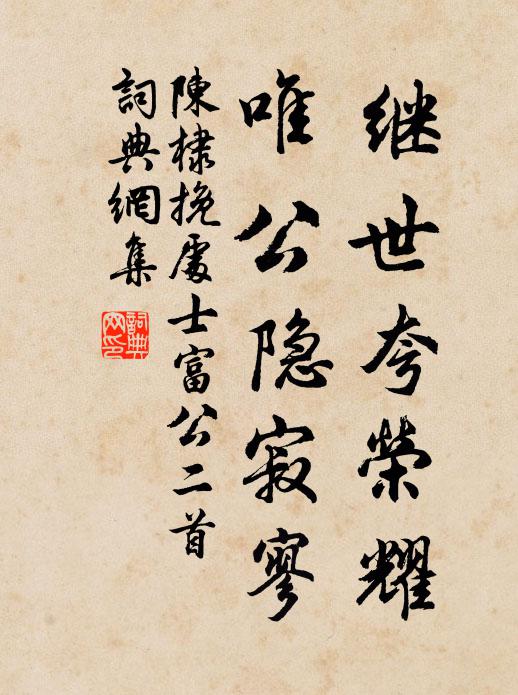 继世夸荣耀
唯公隐寂寥
陳棣挽處士富公二首
詞典網集
詞典网印